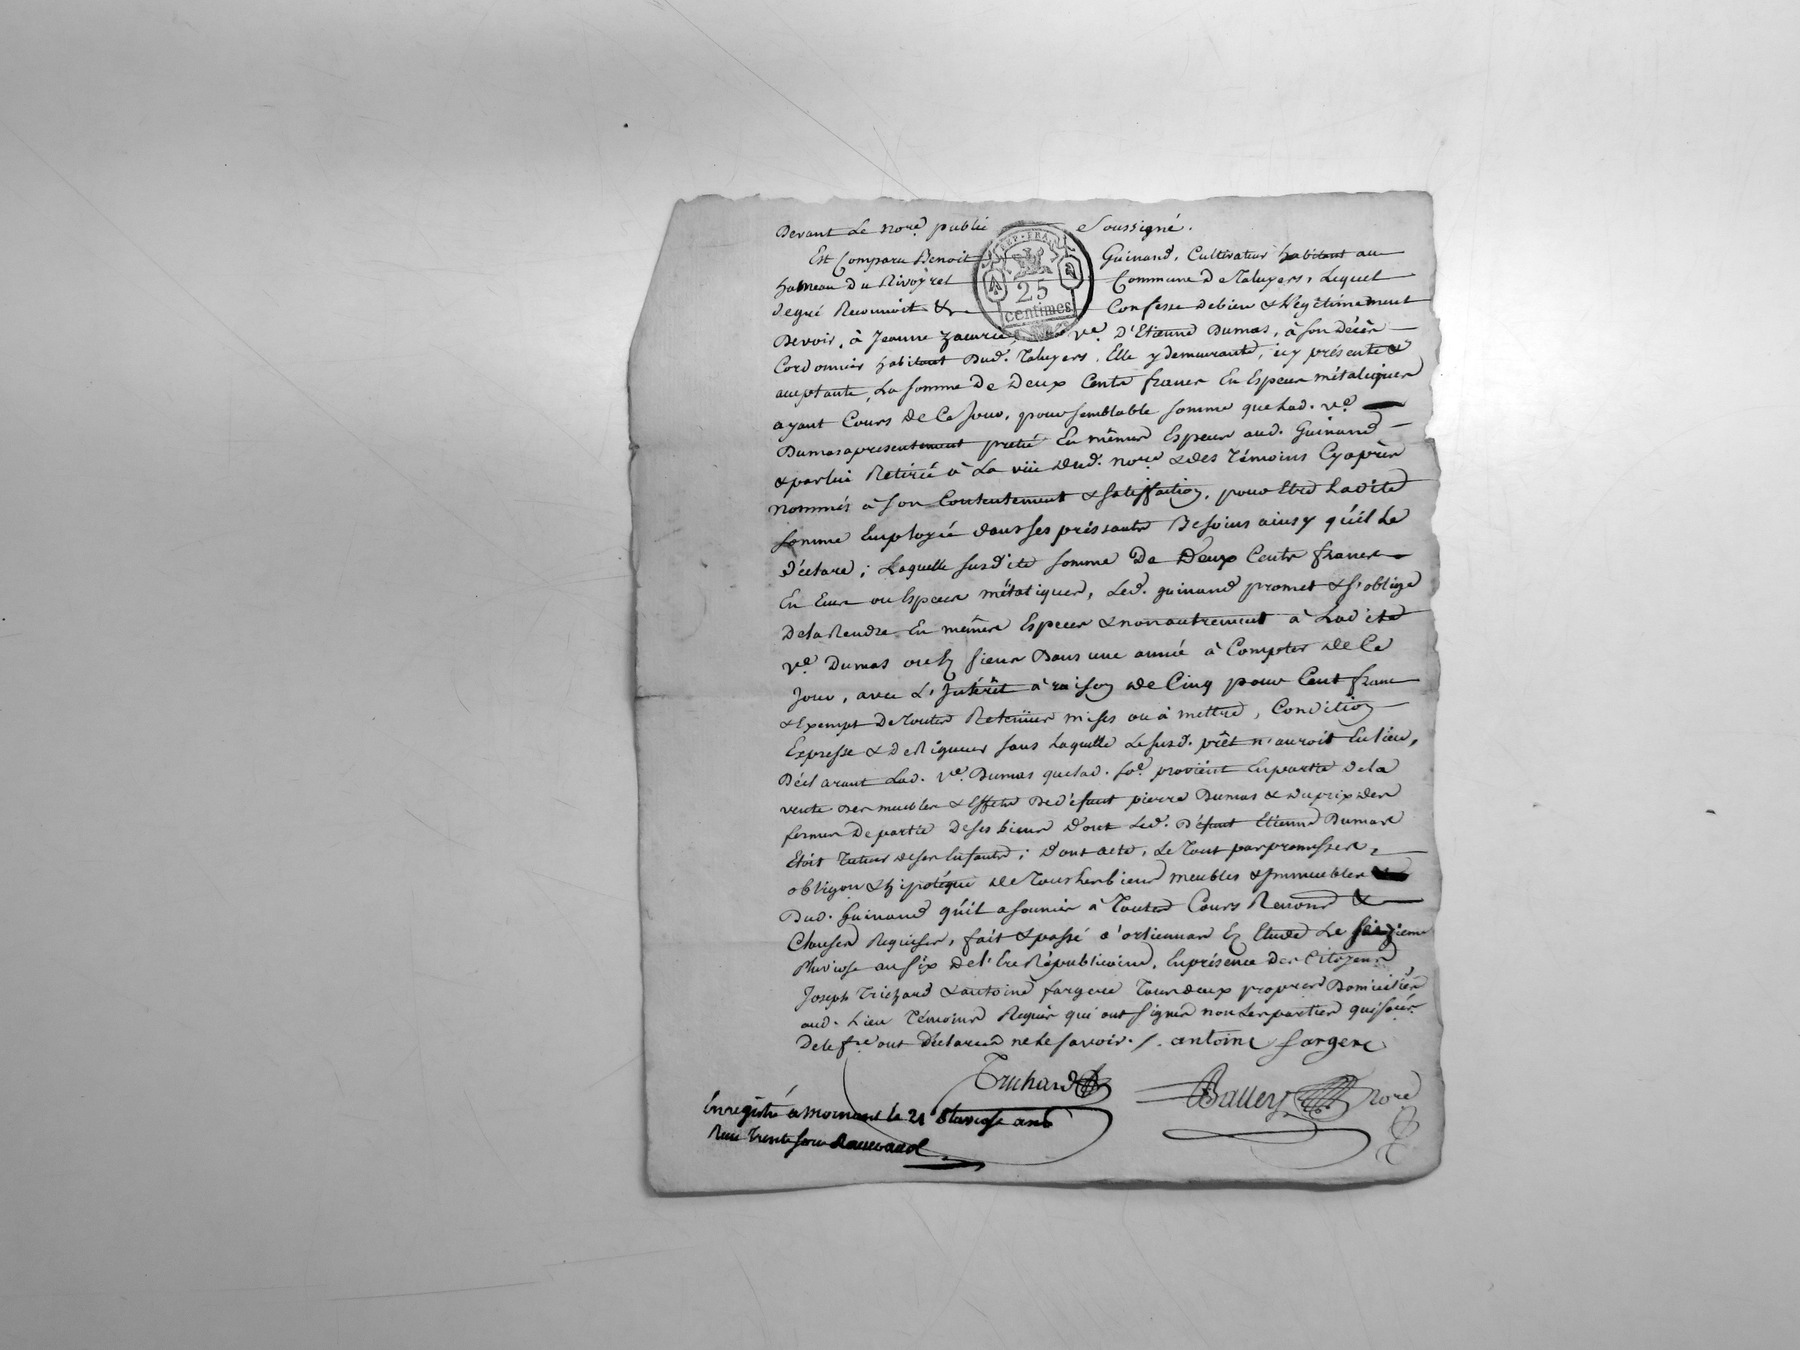 Devant Le nore. publié Soussigné.
REP. FRA.
25
centimes
Est Comparu Benoit Guinand, Cultivateur habitant au
hameau Du Rivoyret Commune De Taluyers, Lequel
degré Reconnoit & Confesse debien & Légitimement
Devoir, à Jeanne ve. D'Etienne Dumas, à son décès
Cordonnier habitant Dud. Taluyers, Elle y demeurante, icy présente &
acceptante, La somme De Deux Cents francs En Especes métaliques
ayant Cours de Ce Jour, pour semblable somme que Lad. ve.
Dumas a presentement preté En mêmes Especes aud. Guinand
& par lui Retiré à La vüe dud. nore. & des Témoins Cy après
nommés à son Contentement & satisfaction, pour Etre Ladite
somme Employée dans ses pressants Besoins ainsy qu'il Le
déclare ; Laquelle susdite somme De Deux Cents francs
En Ecus ou Especes métaliques, Led. guinand promet & s'oblige
De la Rendre En mêmes Especes & non autrement à Ladite
ve. Dumas ou ès siens Dans une année à Compter de Ce
Jour, avec L'Intérêt à raison de Cinq pour Cent franc
& Exempt De Toutes Retenües mises ou à mettre, Condition
Expresse & de Rigueur sans Laquelle Le susd. prêt n'auroit Eu lieu,
Déclarant Lad. Ve. Dumas que lad. so.e provient En partie de la
vente des meubles & Effets De défunt pierre Dumas & du prix des
fermes De partie De ses biens dont Led. Défunt Etienne Dumas
Etoit Tuteur de ses Enfants ; dont acte, Le Tout par promesses,
obligon & hipotéque de Tous ses biens meubles & Immeubles
Dud. Guinand qu'il a soumis à Toutes Cours Renond &
Clauses Requises, fait & passé à orliennas En Etude Le seizieme
Pluviose an six de l'Ere Républicaine, En présence des Citoyens
Joseph Trichard & antoine fargere Tous deux propres Domiciliés
aud. Lieu Témoins Requis qui ont signés non Les parties qui
De le fre ont déclarés ne le savoir. /. antoine fargere
Trichard
Balley Nore
Enregistré à mornant le 21 Pluviose an 6
Reçu Trente sous